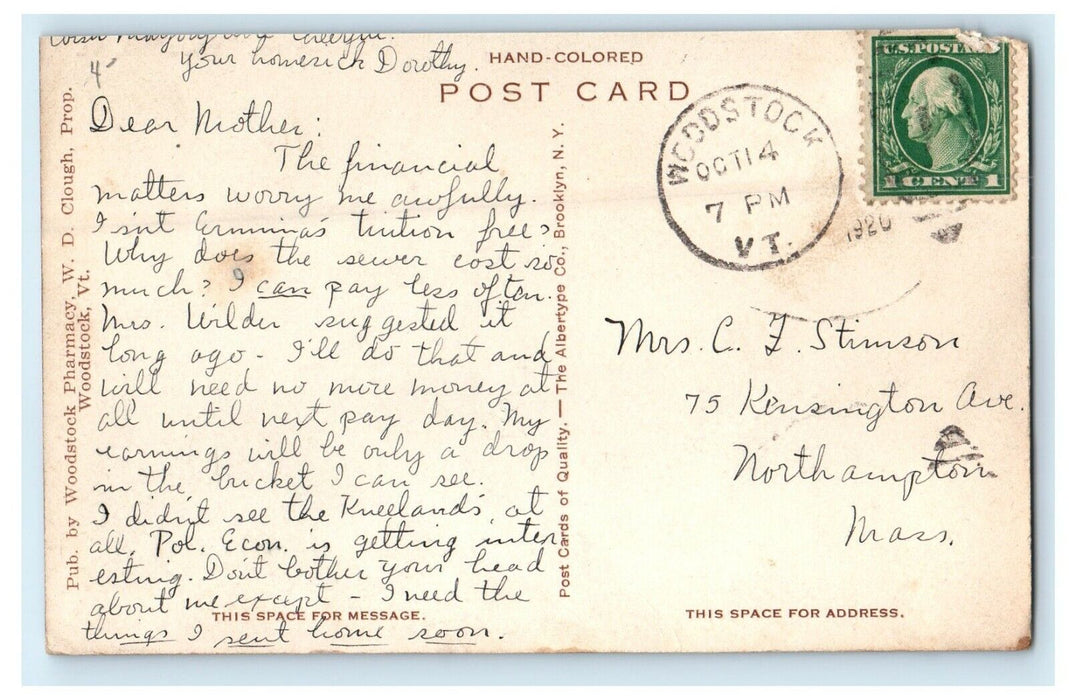 your homesick Dorothy.
4
HAND-COLORED
POST CARD
Dear Mother:
The financial
matters worry me awfully.
Isn't Ermina's tuition free?
Why does the sewer cost so
much? I can pay less often.
Mrs. Wilder suggested it
long ago - I'll do that and
will need no more money at
all until next pay day. My
earnings will be only a drop
in the bucket I can see.
I didn't see the Kneelands at
all. Pol. Econ. is getting inter
esting. Don't bother your head
about me except - I need the
things I sent home soon.
THIS SPACE FOR MESSAGE.
Pub. by Woodstock Pharmacy, W. D. Clough, Prop.
Woodstock, Vt.
Post Cards of Quality. — The Albertype Co., Brooklyn, N. Y.
U.S. POSTAGE
1 CENT 1
WOODSTOCK
OCT 14
7 PM
1920
VT.
Mrs. C. F. Stimson
75 Kensington Ave.
Northampton
Mass.
THIS SPACE FOR ADDRESS.